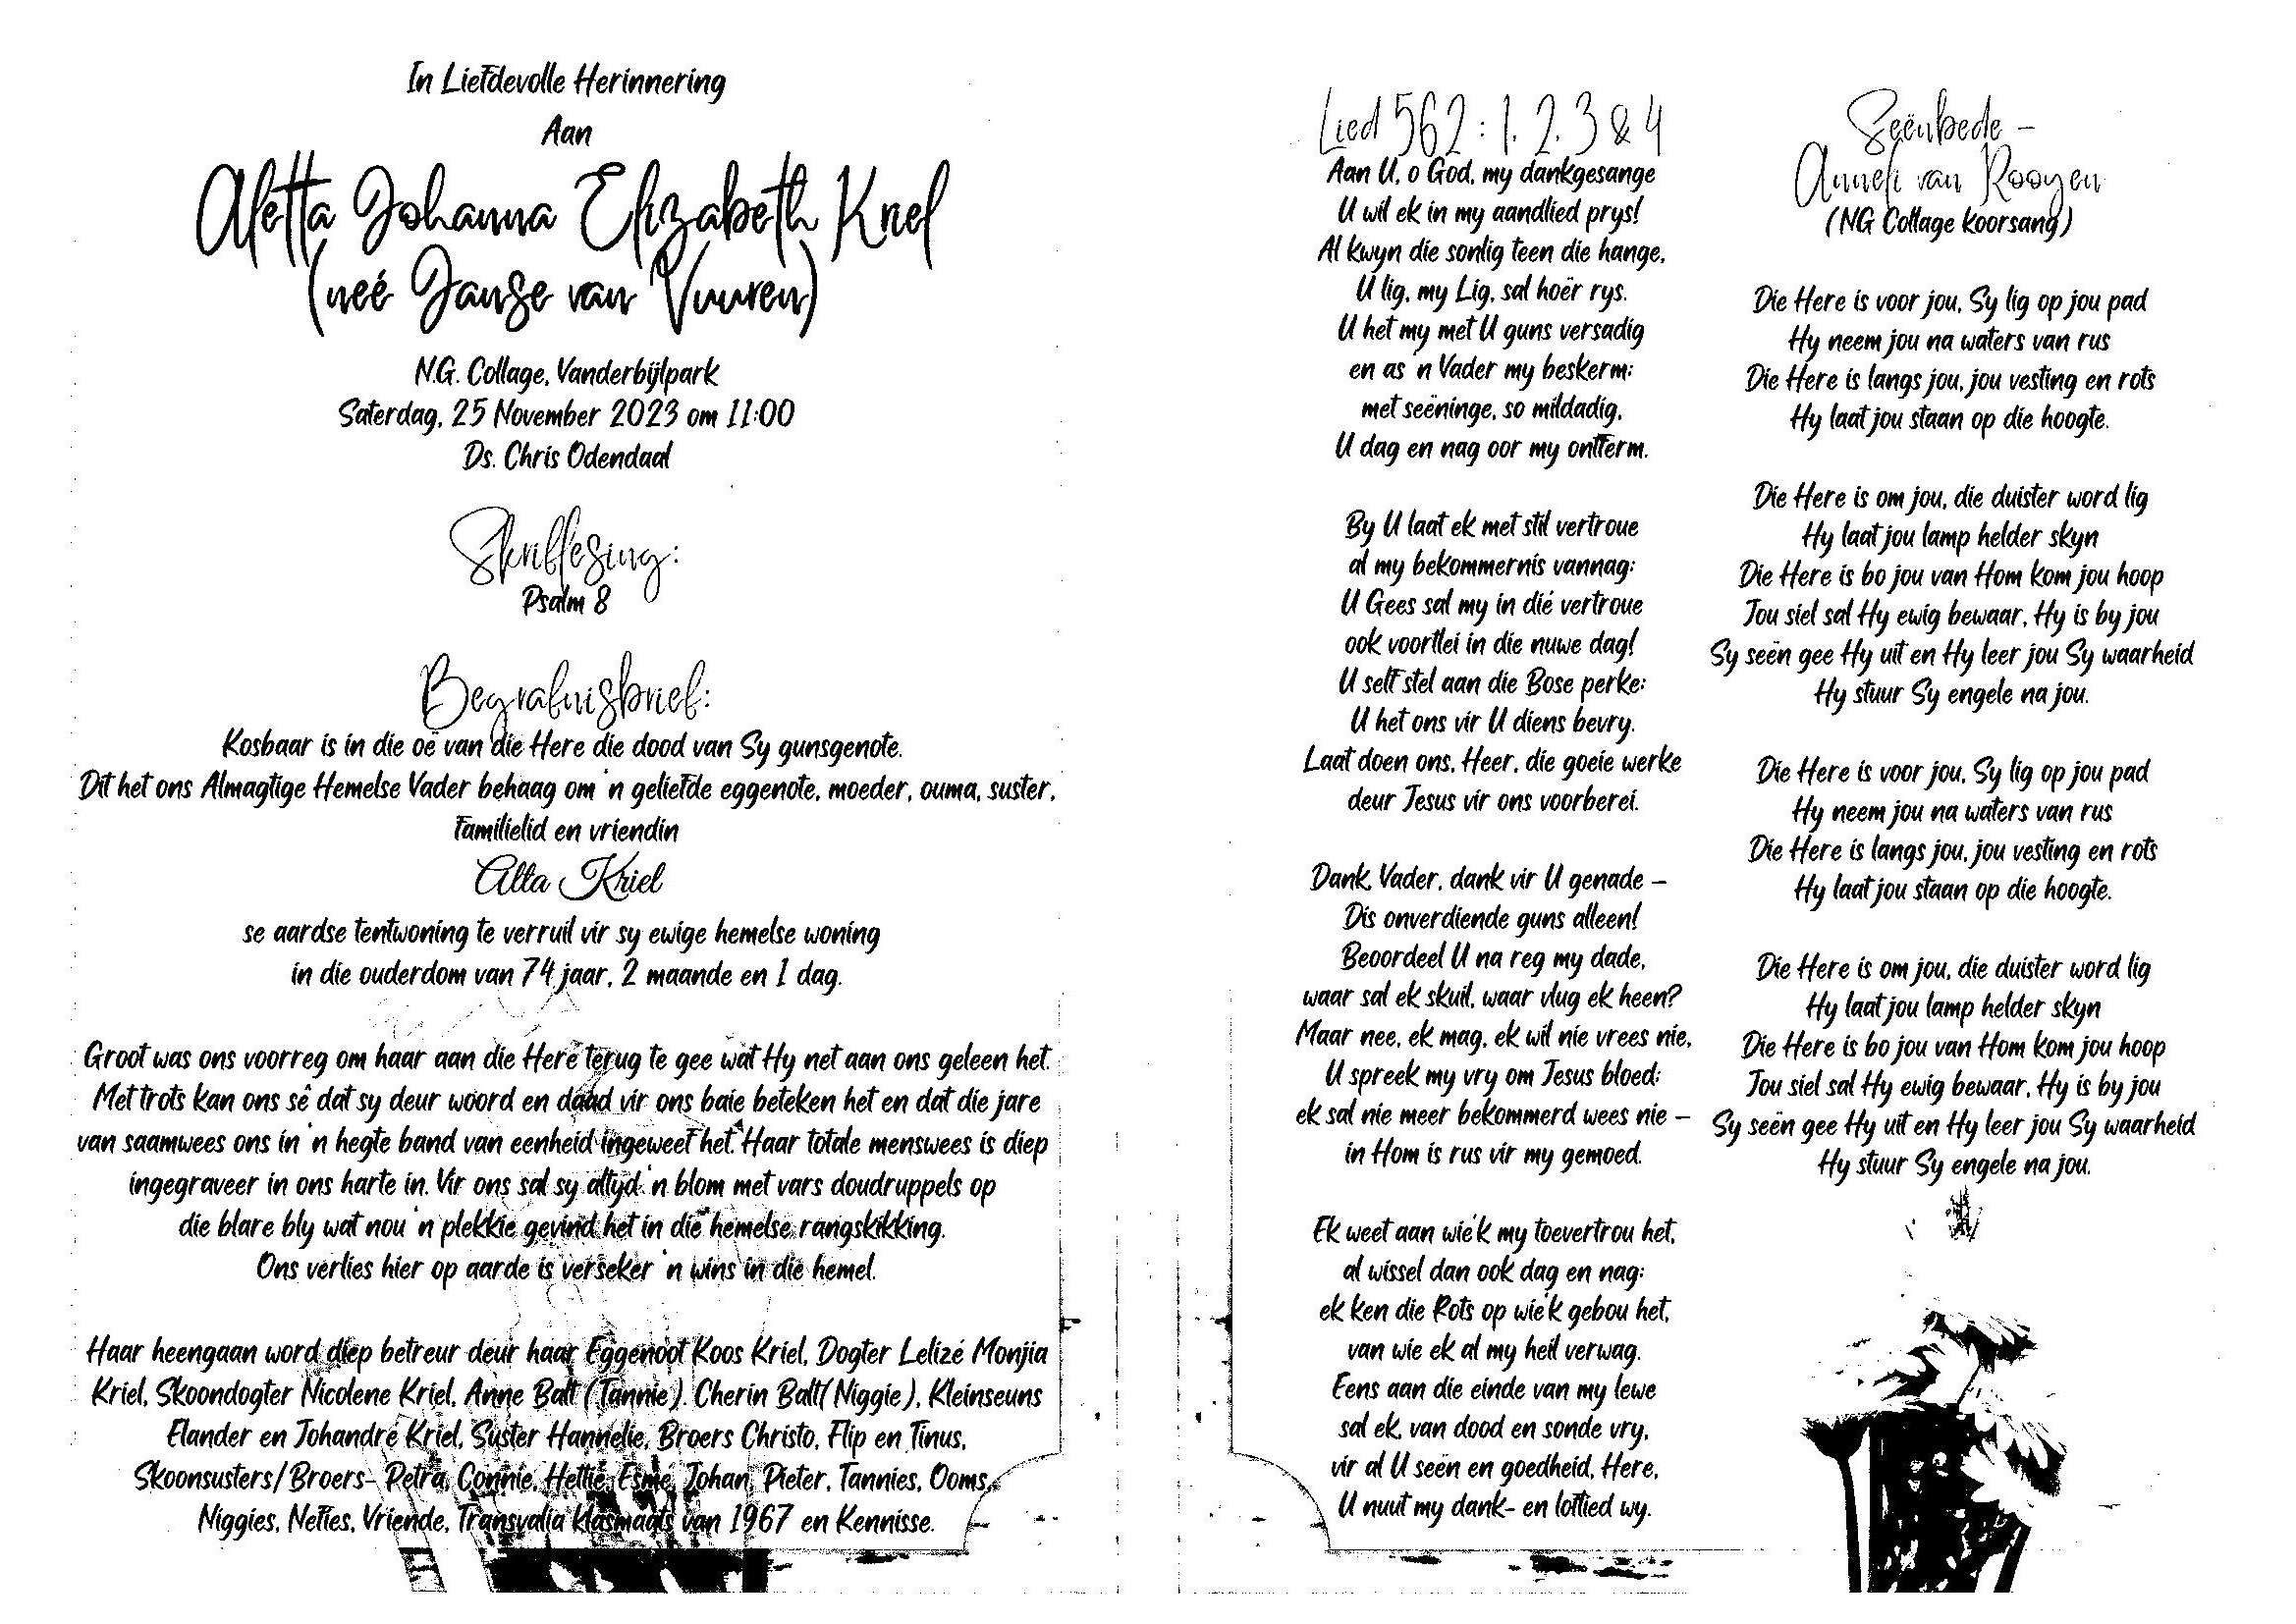 In Liefdevolle Herinnering
Aan
Aletta Johanna Elizabeth Kriel
(neé Janse van Vuuren)
N.G. Collage, Vanderbijlpark
Saterdag, 25 November 2023 om 11:00
Ds. Chris Odendaal
Skriflesing:
Psalm 8
Begrafnisbrief:
Kosbaar is in die oë van die Here die dood van Sy gunsgenote.
Dit het ons Almagtige Hemelse Vader behaag om 'n geliefde eggenote, moeder, ouma, suster,
familielid en vriendin
Alta Kriel
se aardse tentwoning te verruil vir sy ewige hemelse woning
in die ouderdom van 74 jaar, 2 maande en 1 dag.
Groot was ons voorreg om haar aan die Here terug te gee wat Hy net aan ons geleen het.
Met trots kan ons sê dat sy deur woord en daad vir ons baie beteken het en dat die jare
van saamwees ons in 'n hegte band van eenheid ingeweef het. Haar totale menswees is diep
ingegraveer in ons harte in. Vir ons sal sy altyd 'n blom met vars doudruppels op
die blare bly wat nou 'n plekkie gevind het in die hemelse rangskikking.
Ons verlies hier op aarde is verseker 'n wins in die hemel.
Haar heengaan word diep betreur deur haar Eggenoot Koos Kriel, Dogter Lelizé Monjia
Kriel, Skoondogter Nicolene Kriel, Anne Balt (Tannie), Cherin Balt(Niggie), Kleinseuns
Elander en Johandré Kriel, Suster Hannelie, Broers Christo, Flip en Tinus,
Skoonsusters/Broers- Petra, Connie, Hettie, Esmé, Johan, Pieter, Tannies, Ooms,
Niggies, Nefies, Vriende, Transvalia klasmaats van 1967 en Kennisse.
Lied 562 : 1, 2, 3 & 4
Aan U, o God, my dankgesange
U wil ek in my aandlied prys!
Al kwyn die sonlig teen die hange,
U lig, my Lig, sal hoër rys.
U het my met U guns versadig
en as 'n Vader my beskerm;
met seëninge, so mildadig,
U dag en nag oor my ontferm.
By U laat ek met stil vertroue
al my bekommernis vannag;
U Gees sal my in dié vertroue
ook voortlei in die nuwe dag!
U self stel aan die Bose perke;
U het ons vir U diens bevry.
Laat doen ons, Heer, die goeie werke
deur Jesus vir ons voorberei.
Dank, Vader, dank vir U genade –
Dis onverdiende guns alleen!
Beoordeel U na reg my dade,
waar sal ek skuil, waar vlug ek heen?
Maar nee, ek mag, ek wil nie vrees nie,
U spreek my vry om Jesus bloed;
ek sal nie meer bekommerd wees nie –
in Hom is rus vir my gemoed.
Ek weet aan wie'k my toevertrou het,
al wissel dan ook dag en nag;
ek ken die Rots op wie'k gebou het,
van wie ek al my heil verwag.
Eens aan die einde van my lewe
sal ek, van dood en sonde vry,
vir al U seën en goedheid, Here,
U nuut my dank- en loflied wy.
Seënbede –
Anneli van Rooyen
(NG Collage koorsang)
Die Here is voor jou, Sy lig op jou pad
Hy neem jou na waters van rus
Die Here is langs jou, jou vesting en rots
Hy laat jou staan op die hoogte.
Die Here is om jou, die duister word lig
Hy laat jou lamp helder skyn
Die Here is bo jou van Hom kom jou hoop
Jou siel sal Hy ewig bewaar, Hy is by jou
Sy seën gee Hy uit en Hy leer jou Sy waarheid
Hy stuur Sy engele na jou.
Die Here is voor jou, Sy lig op jou pad
Hy neem jou na waters van rus
Die Here is langs jou, jou vesting en rots
Hy laat jou staan op die hoogte.
Die Here is om jou, die duister word lig
Hy laat jou lamp helder skyn
Die Here is bo jou van Hom kom jou hoop
Jou siel sal Hy ewig bewaar, Hy is by jou
Sy seën gee Hy uit en Hy leer jou Sy waarheid
Hy stuur Sy engele na jou.